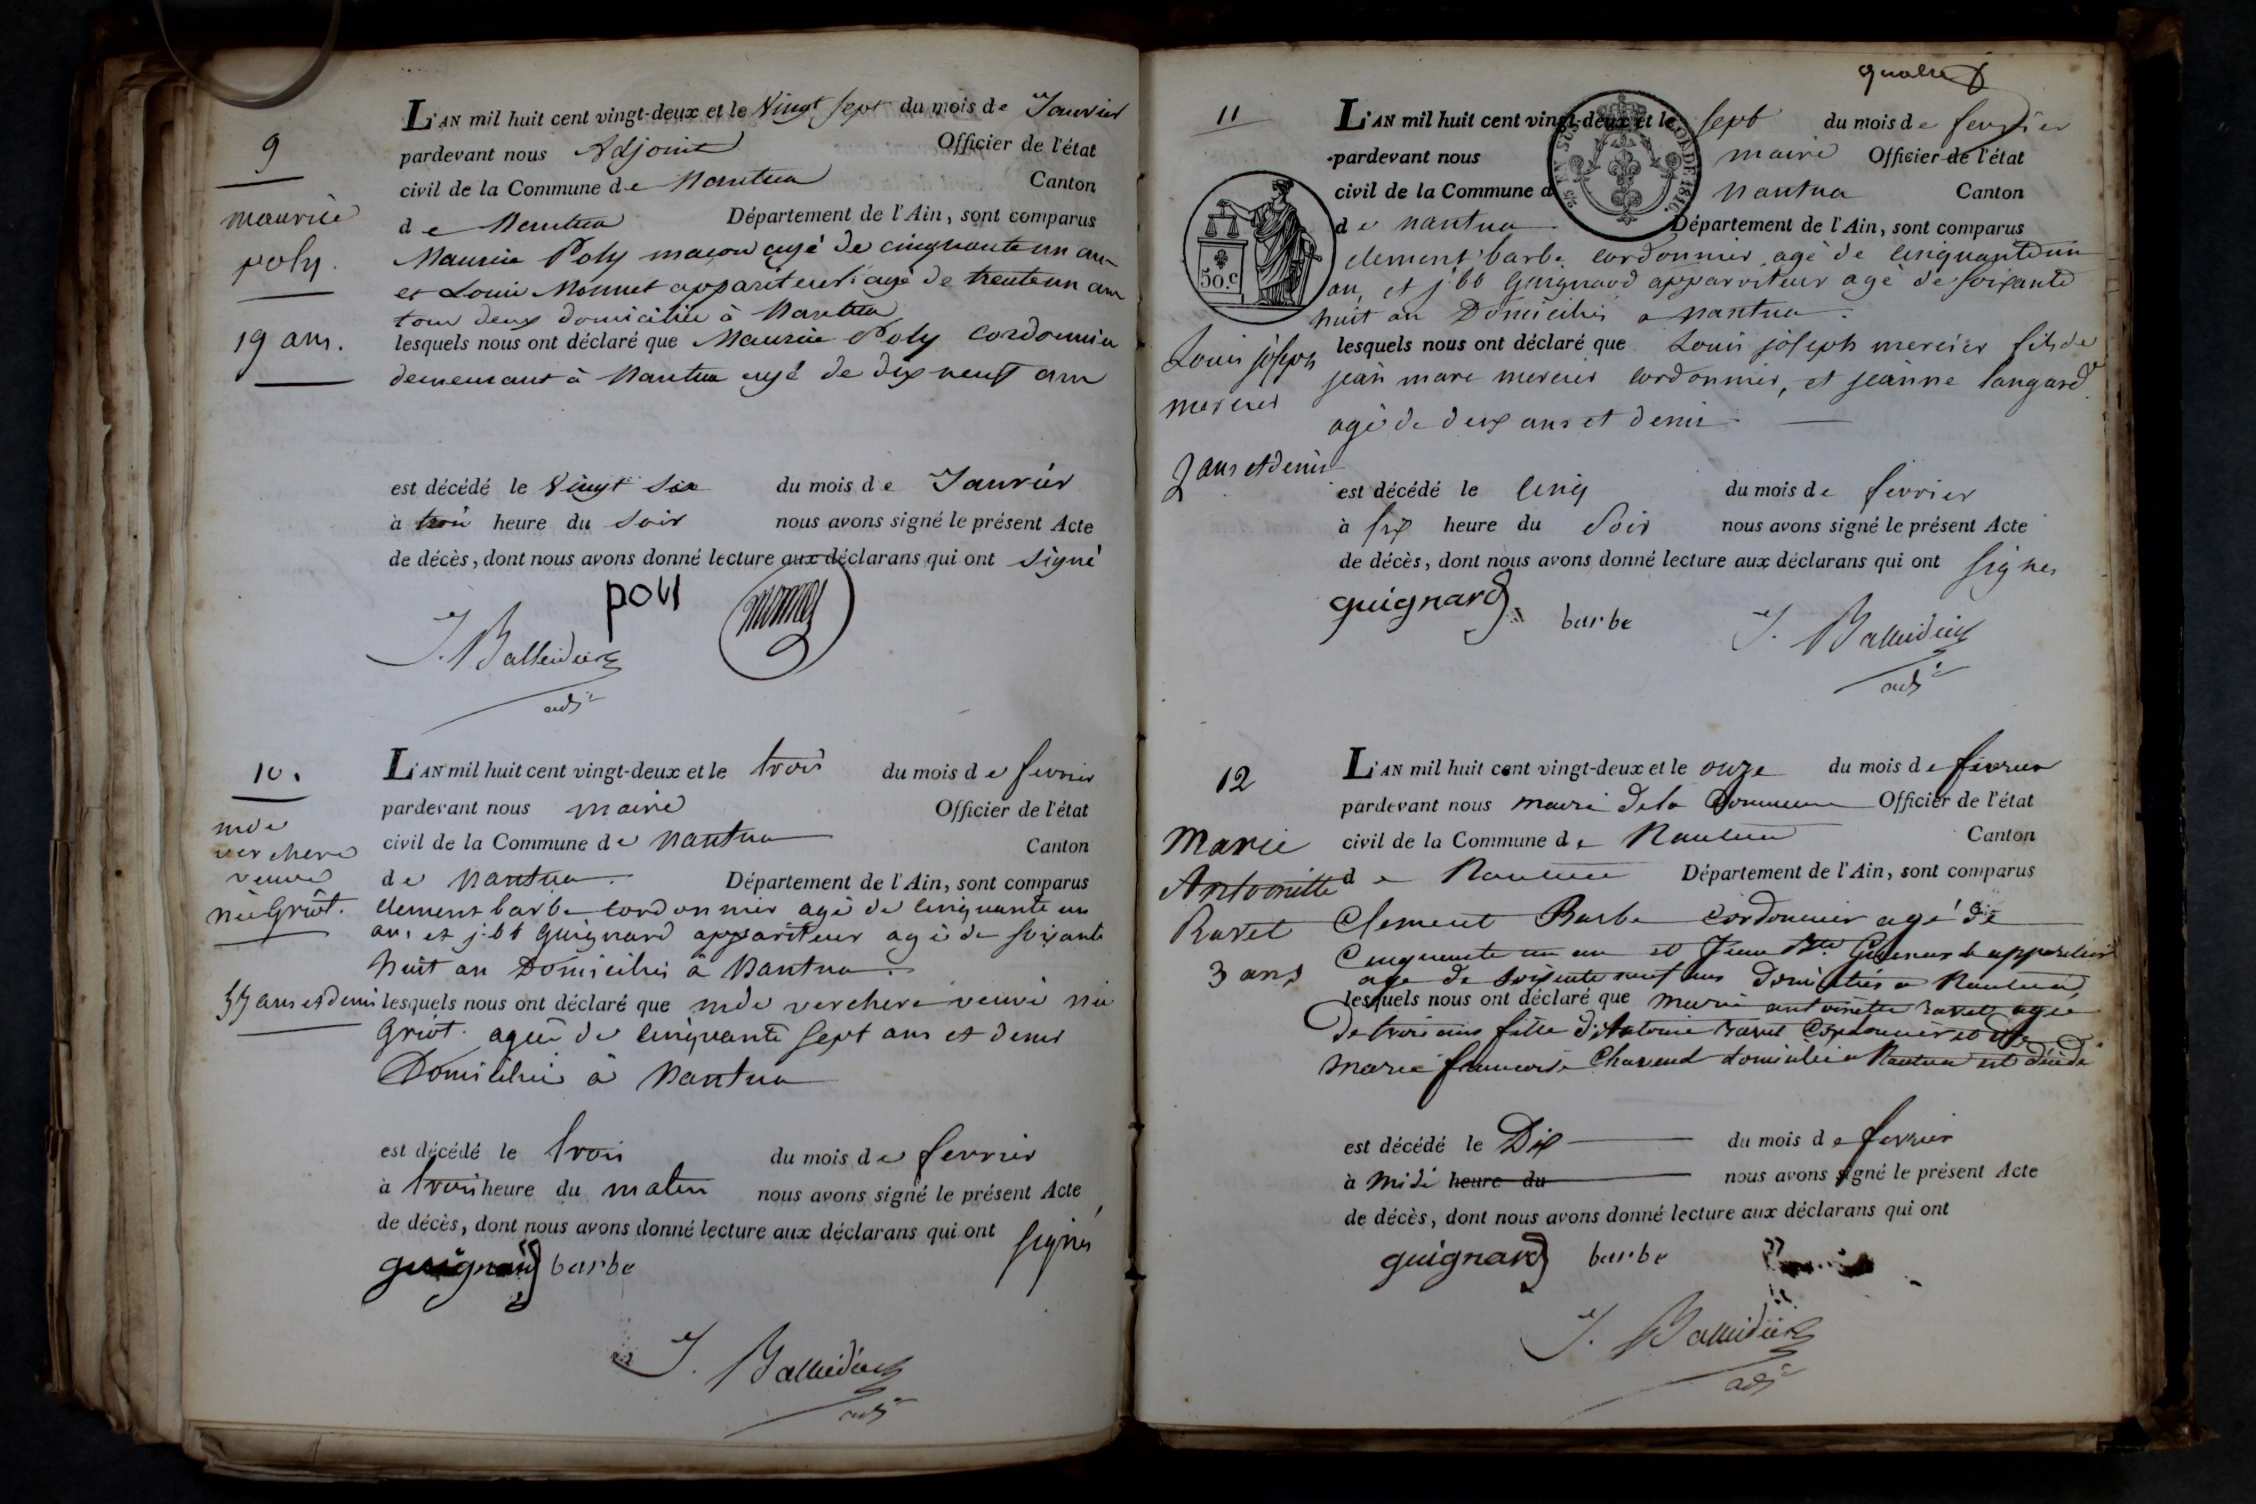 9
maurice
poly.
19 ans.
L'AN mil huit cent vingt-deux et le Vingt sept du mois de Janvier
pardevant nous Adjoint Officier de l'état
civil de la Commune de Nantua Canton
de Nantua Département de l'Ain, sont comparus
Maurice Poly maçon agé de cinquante un an
et Louis Monnet appariteur agé de trente un ans
tous deux domiciliés à Nantua
lesquels nous ont déclaré que Maurice Poly Cordonnier
demeurant à Nantua agé de dix neuf ans
est décédé le Vingt Six du mois de Janvier
à trois heure du Soir nous avons signé le présent Acte
de décès, dont nous avons donné lecture aux déclarans qui ont signé
poly monnet
J. Balleidier
adjt
10.
mde
verchere
veuve
née Griot.
57 ans et demi
L'AN mil huit cent vingt-deux et le trois du mois de fevrier
pardevant nous maire Officier de l'état
civil de la Commune de nantua Canton
de nantua. Département de l'Ain, sont comparus
clement barbe cordonnier agé de cinquante un
ans et j.bt guignard appariteur agé de soixante
huit an Domiciliés à Nantua.
lesquels nous ont déclaré que mde verchere veuve née
griot. agée de cinquante sept ans et demi
Domiciliée à Nantua
est décédé le trois du mois de fevrier
à trois heure du matin nous avons signé le présent Acte
de décès, dont nous avons donné lecture aux déclarans qui ont signés
guignard barbe
J. Balleidier
adjt
quatre
11
50.C
Louis joseph
mercier
2 ans et demi
L'AN mil huit cent vingt-deux et le sept du mois de fevrier
pardevant nous maire Officier de l'état
civil de la Commune d nantua Canton
de nantua Département de l'Ain, sont comparus
clement barbe cordonnier agé de cinquante un
an, et j.bt guignard appariteur agé de soixante
huit an Domiciliés a nantua.
lesquels nous ont déclaré que Louis joseph mercier fils de
jean marc mercier cordonnier, et jeanne langard
agé de deux ans et demi
est décédé le cinq du mois de fevrier
à six heure du Soir nous avons signé le présent Acte
de décès, dont nous avons donné lecture aux déclarans qui ont signés
guignard barbe J. Balleidier
adjt
12
Marie
Antoinette
Ravet
3 ans
L'AN mil huit cent vingt-deux et le onze du mois de fevrier
pardevant nous maire de la Commune Officier de l'état
civil de la Commune de Nantua Canton
de Nantua Département de l'Ain, sont comparus
Clement Barbe cordonnier agé de
Cinquante un an et Jean Bte Guignard appariteur
age de soixante neuf ans domiciliés a Nantua
lesquels nous ont déclaré que marie antoinette ravet agée
de trois ans fille d'Antoine ravet Cordonnier et de
marie francoise Chavend domiciliée a Nantua est décédé
est décédé le Dix du mois de fevrier
à midi heure du nous avons signé le présent Acte
de décès, dont nous avons donné lecture aux déclarans qui ont
guignard barbe
J. Balleidier
adjt